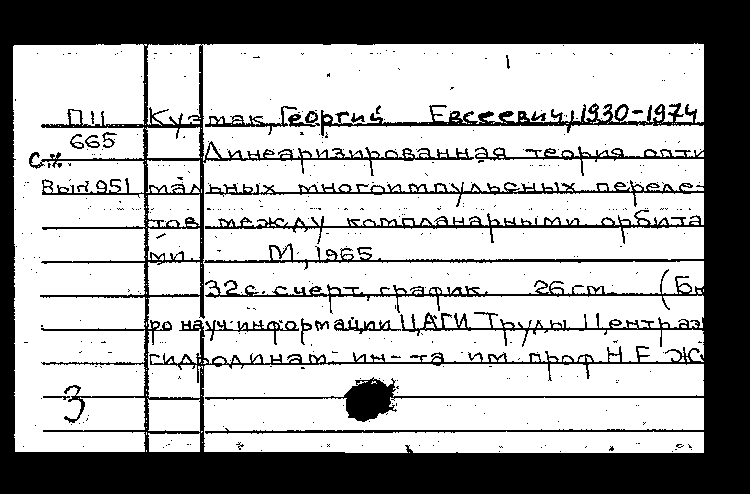 П11 Кузмак, Георгий Евсеевич, 1930-1974
665
Линеаризированная теория опти
Вып. 951 мальных многоимпульсных переле-
тов между компланарными орбита
ми. М., 1965.
32 с. с черт., график. 26 см. (Бю
ро науч. информации ЦАГИ Труды Центр. аэ
гидродинам. ин-та им. проф. Н. Е. Жу
3